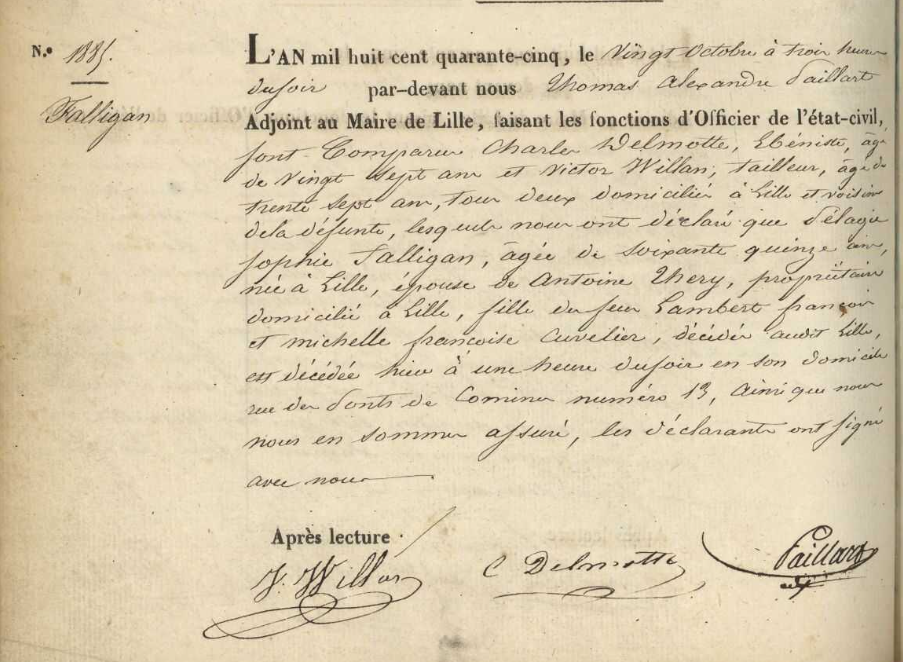 N.° 1885.
Falligan
L'AN mil huit cent quarante-cinq, le Vingt Octobre à trois heures
du soir par-devant nous Thomas Alexandre Paillart
Adjoint au Maire de Lille, faisant les fonctions d'Officier de l'état-civil,
sont Comparus Charles Delmotte, Ebéniste, âgé
de Vingt sept ans et Victor Willan, tailleur, âgé de
trente sept ans, tous deux domiciliés à Lille et voisins
de la défunte, lesquels nous ont déclaré que Pélagie
Sophie Falligan, âgée de soixante quinze ans,
née à Lille, épouse de Antoine Thery, propriétaire
domicilié à Lille, fille de feu Lambert françois
et michelle françoise Cuvelier, décédés audit Lille,
est décédée hier à une heure du soir en son domicile
rue des Ponts de Comines numéro 13, ainsi que nous
nous en sommes assuré, les déclarants ont signé
avec nous
Après lecture
V. Willan C Delmotte Paillart